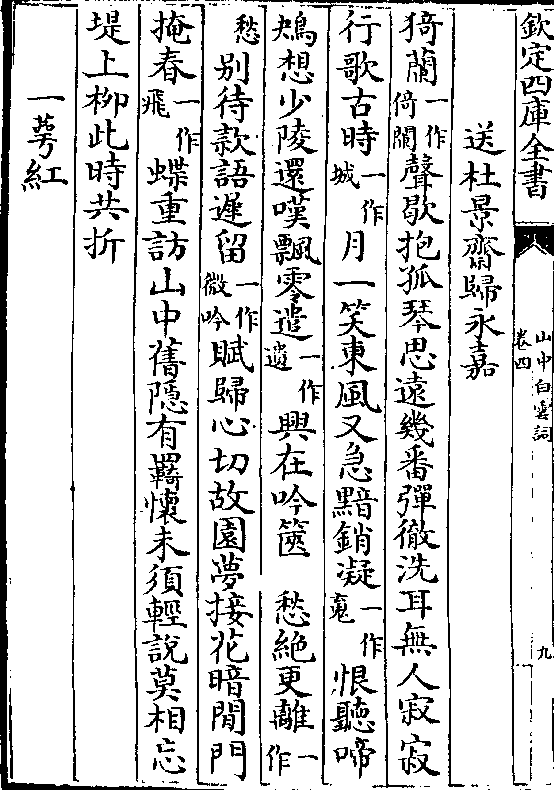 欽定四庫全書
山中白雲詞
卷四
九
送杜景齋歸永嘉
猗蘭一作倚闌聲歇抱孤琴思遠幾番彈徹洗耳無人寂寂
行歌古時一作城月一笑東風又急黯銷凝一作䰟恨聽啼
鴂想少陵還嘆飄零遣一作遺興在吟篋 愁絶更離一作
愁别待款語遲留一作微吟賦歸心切故園夢接花暗閒門
掩春一作飛蝶重訪山中舊隠有羈懷未須輕說莫相忘
堤上栁此時共折
一萼紅